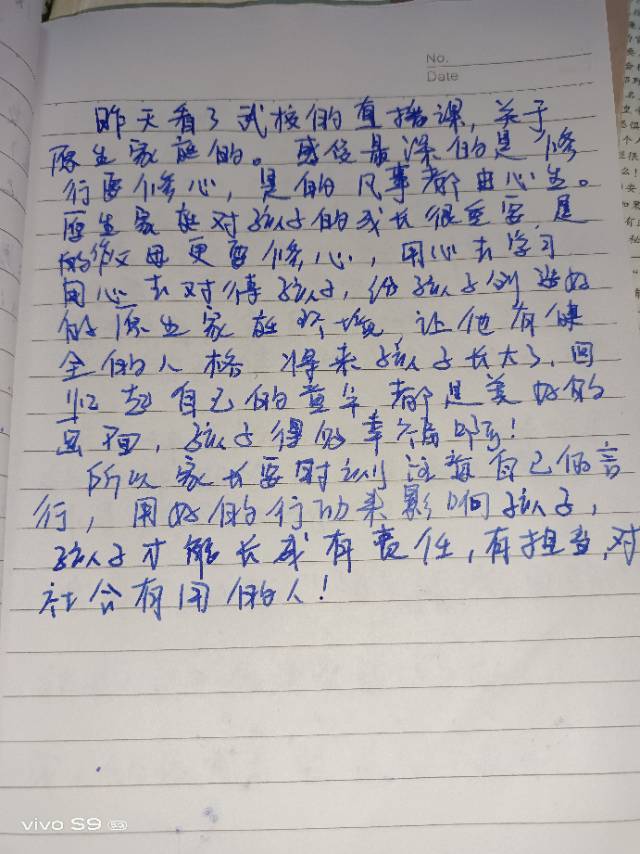 No.
Date
昨天看了武校的直播课,关于
原生家庭的。感受最深的是修
行要修心,是的凡事都由心生。
原生家庭对孩子的成长很重要,是
的做父母更要修心,用心去学习
用心去对待孩子,给孩子创造好
的原生家庭环境,让他有健
全的人格,将来孩子长大了,回
忆起自己的童年都是美好的
画面,孩子得多幸福啊!
所以家长要时刻注意自己的言
行,用好的行动来影响孩子,
孩子才能长成有责任,有担当,对
社会有用的人!
vivo S9